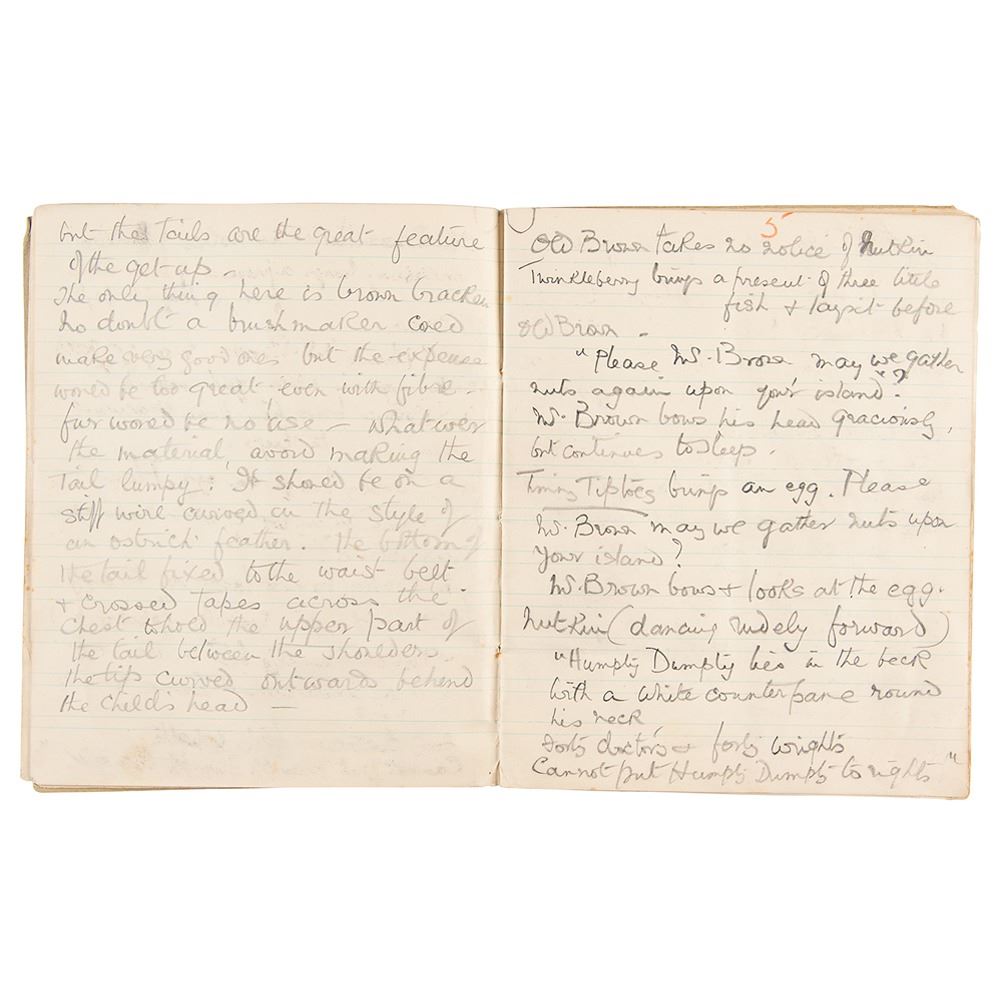 but the tails are the great feature
of the get-up -
The only thing here is brown bracken
no doubt a brushmaker coned
make very good ones but the expense
woned be too great even with fibre -
fur woned be no use - Whatever
the material, avoid making the
tail lumpy: It shoned be on a
stiff wire curved in the style of
an ostrich feather. The bottom of
the tail fixed to the waist belt
+ crossed tapes across the
chest to hold the upper part of
the tail between the shoulders
the tips curved outwards behind
the child's head —
5
Old Brown takes no notice of Nutkin
Twinkleberry brings a present of three little
fish + lays it before
Old Brown -
"Please Mr. Brown may we gather
nuts again upon your island.
Mr. Brown bows his head graciously,
but continues to sleep.
Timmy Tiptoes brings an egg. Please
Mr. Brown may we gather nuts upon
your island?
Mr. Brown bows + looks at the egg.
Nutkin (dancing rudely forward)
"Humpty Dumpty lies in the beck
With a white counterpane round
his neck
Forty doctors + forty wrights
Cannot put Humpty Dumpty to rights"